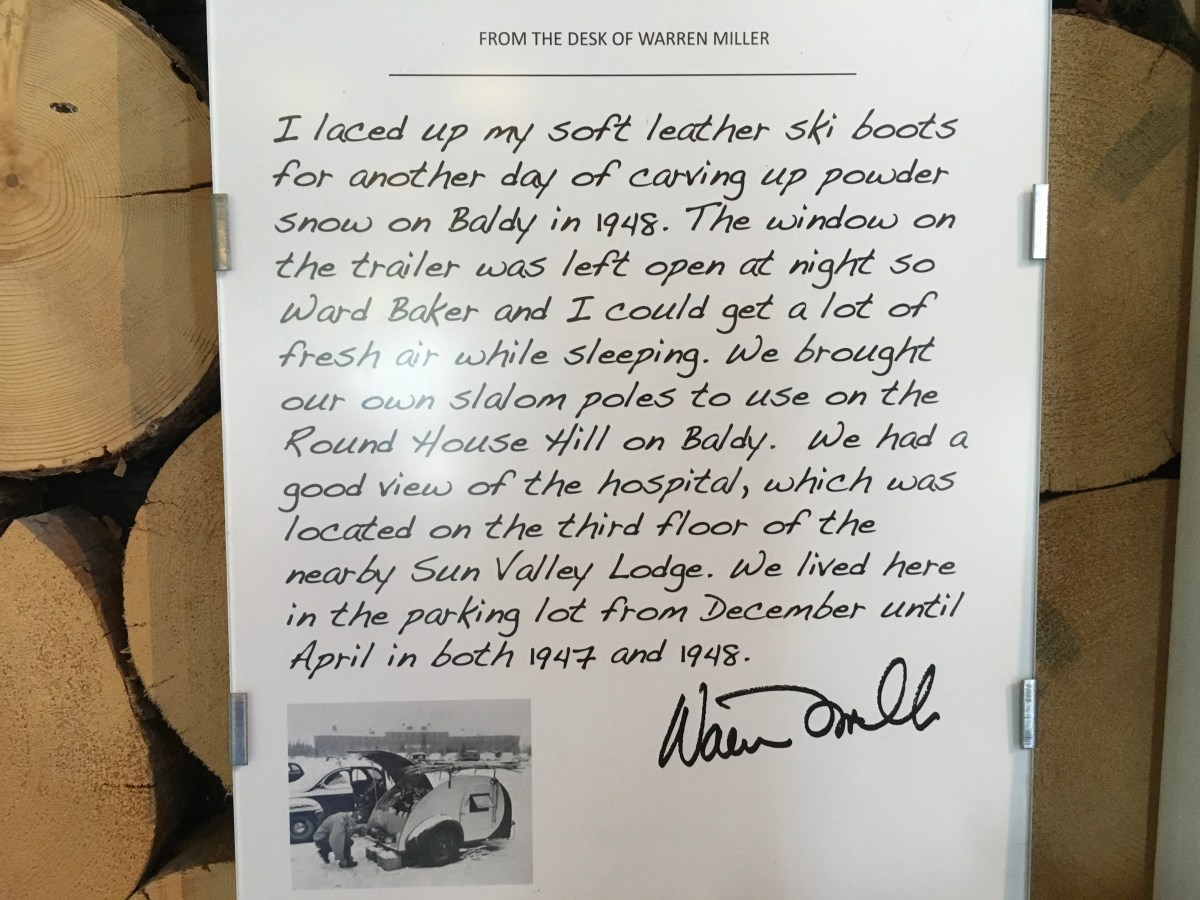 FROM THE DESK OF WARREN MILLER
I laced up my soft leather ski boots
for another day of carving up powder
snow on Baldy in 1948. The window on
the trailer was left open at night so
Ward Baker and I could get a lot of
fresh air while sleeping. We brought
our own slalom poles to use on the
Round House Hill on Baldy. We had a
good view of the hospital, which was
located on the third floor of the
nearby Sun Valley Lodge. We lived here
in the parking lot from December until
April in both 1947 and 1948.
Warren Miller